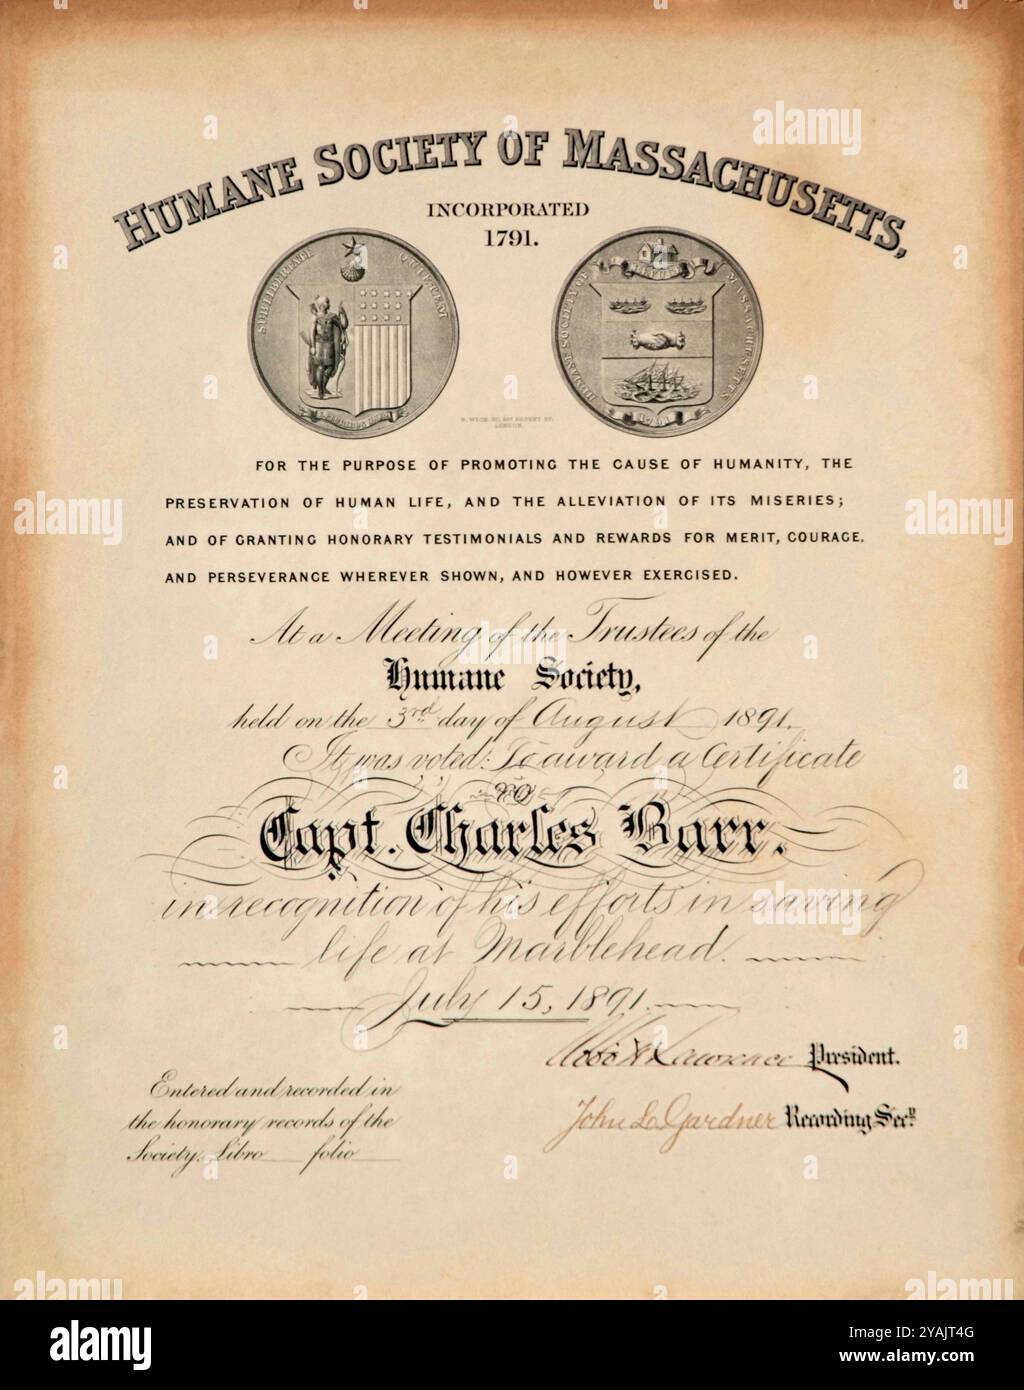 HUMANE SOCIETY OF MASSACHUSETTS,
INCORPORATED
1791.
SUB LIBERTATE QUIETEM
HUMANE SOCIETY OF MASSACHUSETTS
1791
LONDON.
FOR THE PURPOSE OF PROMOTING THE CAUSE OF HUMANITY, THE
PRESERVATION OF HUMAN LIFE, AND THE ALLEVIATION OF ITS MISERIES;
AND OF GRANTING HONORARY TESTIMONIALS AND REWARDS FOR MERIT, COURAGE,
AND PERSEVERANCE WHEREVER SHOWN, AND HOWEVER EXERCISED.
At a Meeting of the Trustees of the
Humane Society,
held on the 3rd day of August 1891.
It was voted: To award a Certificate
TO
Capt. Charles Barr.
in recognition of his efforts in saving
life at Marblehead.
July 15, 1891.
Lawrence President.
John L. Gardner Recording Secy.
Entered and recorded in
the honorary records of the
Society, Libro folio
alamy
Image ID: 2YAJT4G
www.alamy.com